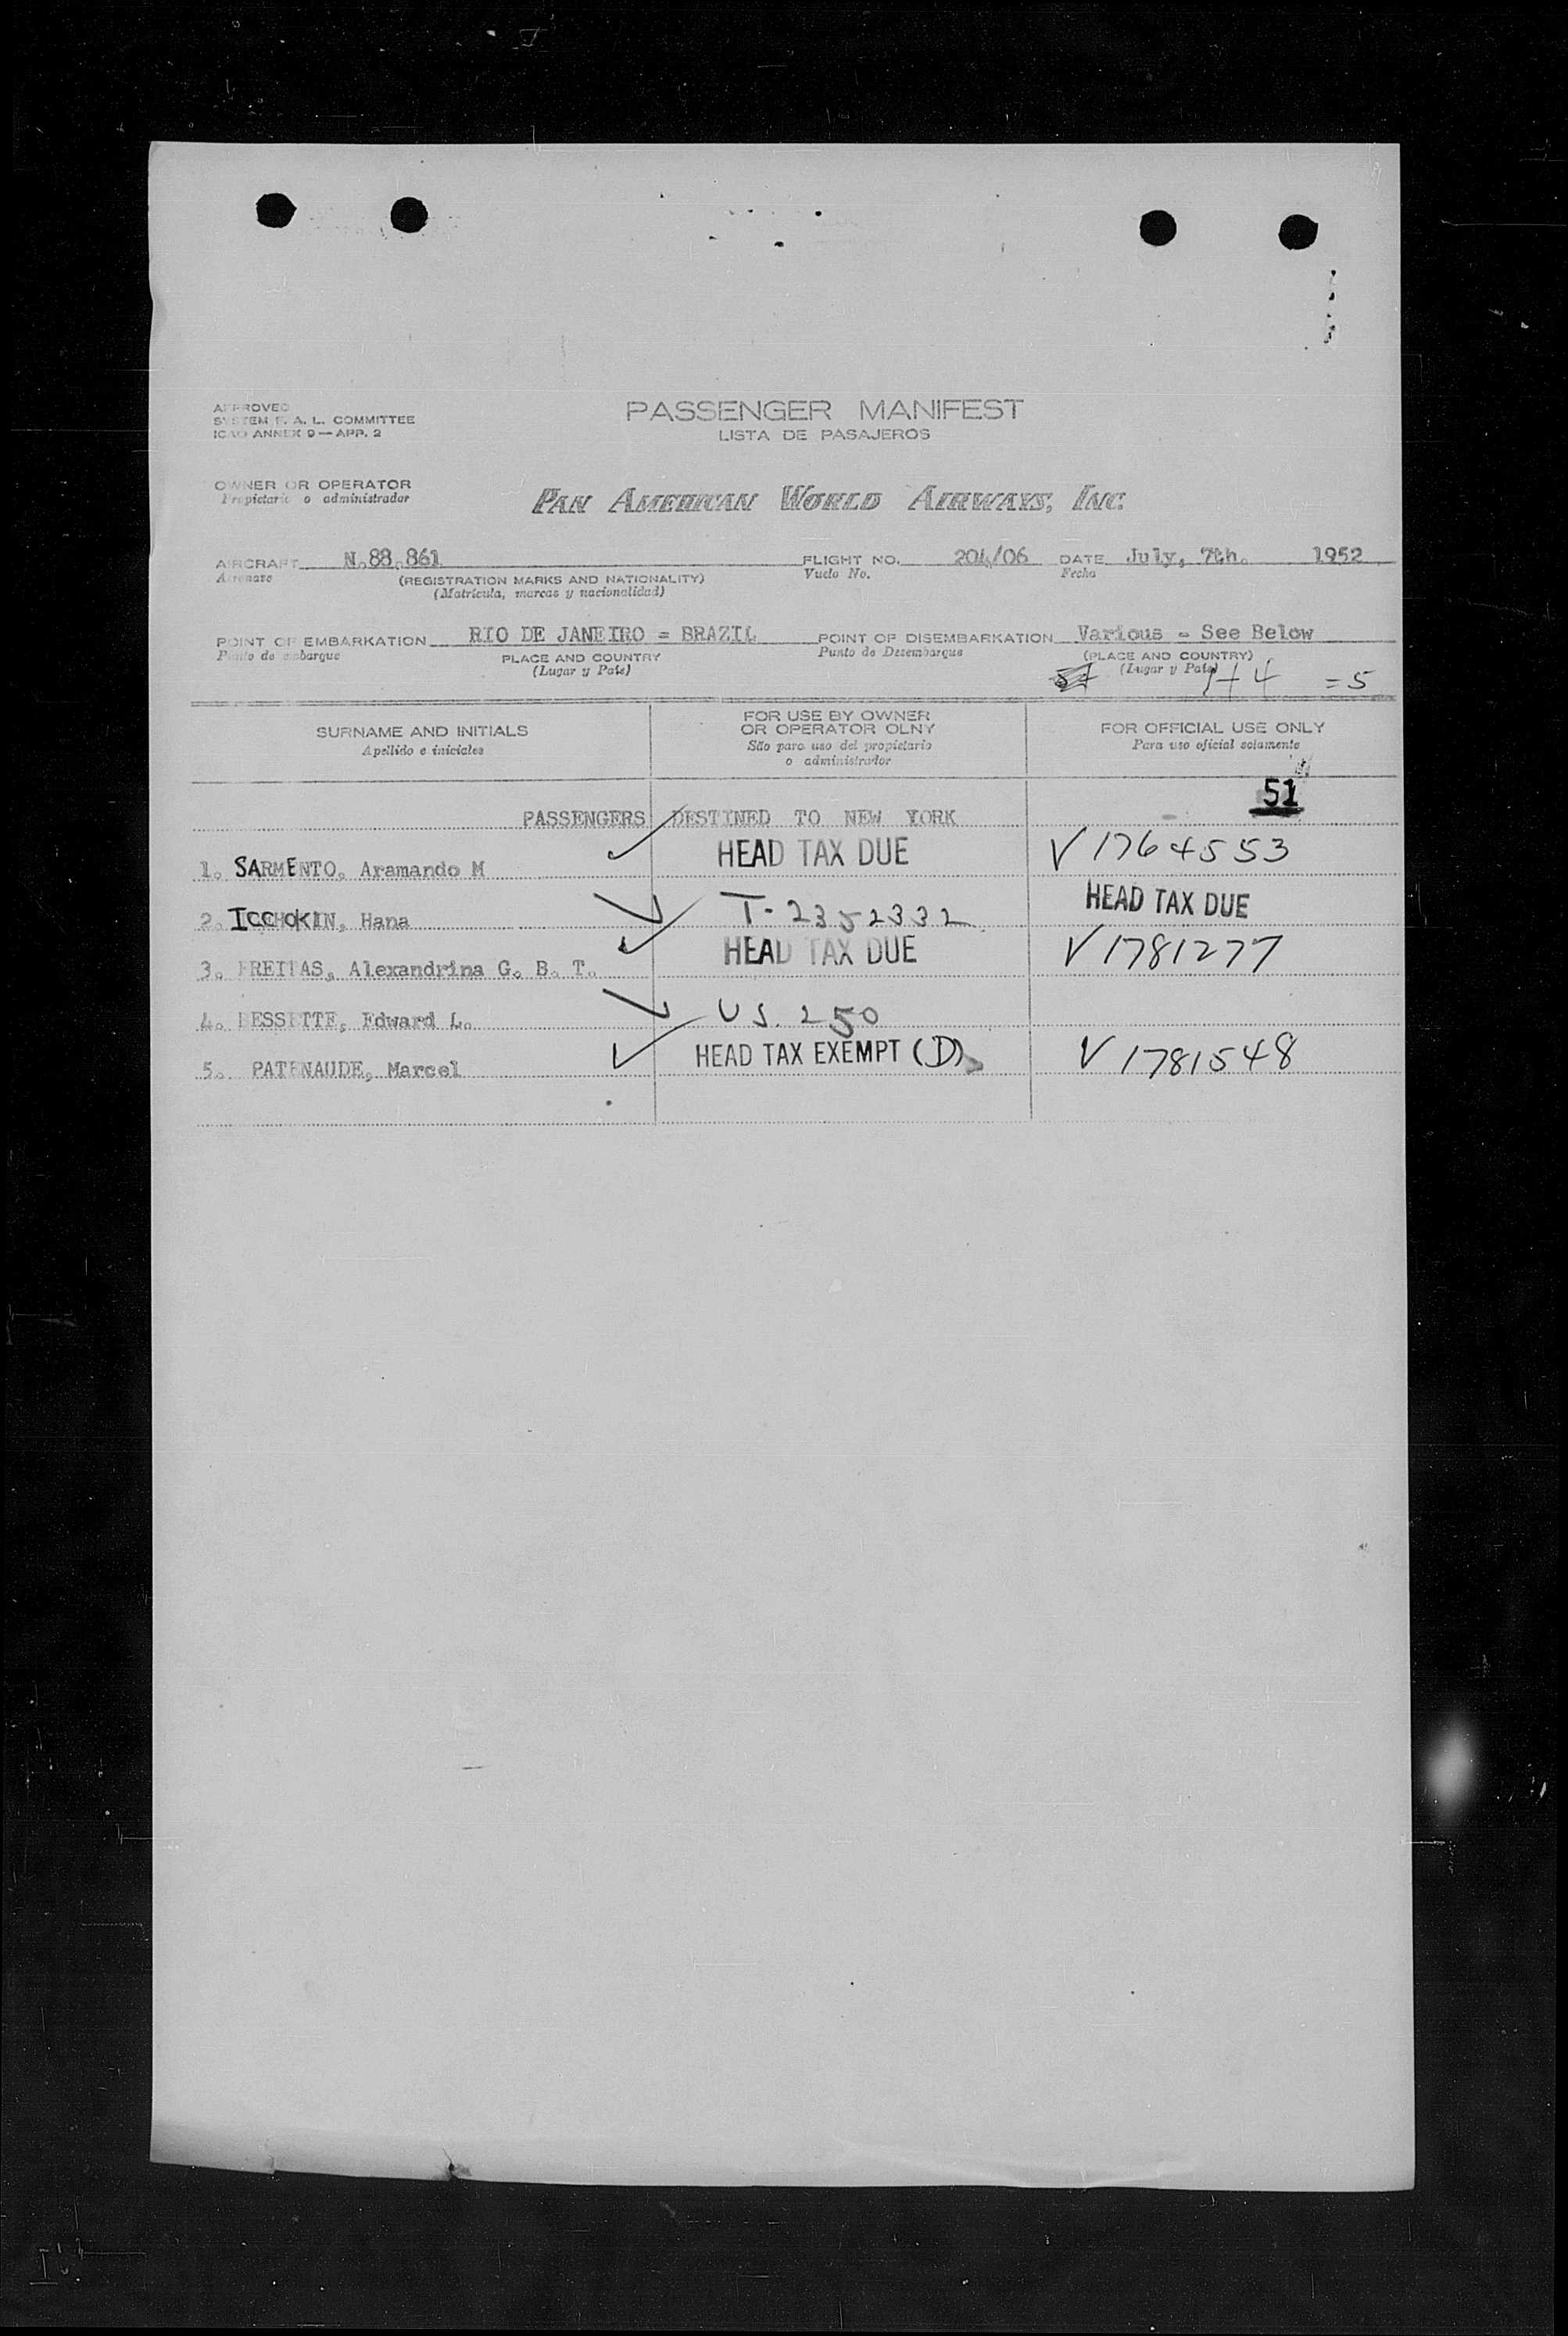 APPROVED
SYSTEM F. A. L. COMMITTEE
ICAO ANNEX 9 — APP. 2
PASSENGER MANIFEST
LISTA DE PASAJEROS
OWNER OR OPERATOR
Propietario o administrador
PAN AMERICAN WORLD AIRWAYS, INC.
AIRCRAFT N.88.861 FLIGHT NO. 204/06 DATE July, 7th. 1952
Aeronave (REGISTRATION MARKS AND NATIONALITY) Vuelo No. Fecha
(Matricula, marcas y nacionalidad)
POINT OF EMBARKATION RIO DE JANEIRO = BRAZIL POINT OF DISEMBARKATION Various - See Below
Punto de embarque PLACE AND COUNTRY Punto de Desembarque (PLACE AND COUNTRY)
(Lugar y Pais) (Lugar y Pais)
1+4 =5
SURNAME AND INITIALS
Apellido e iniciales
FOR USE BY OWNER
OR OPERATOR OLNY
São para uso del propietario
o administrador
FOR OFFICIAL USE ONLY
Para uso oficial solamente
51
PASSENGERS DESTINED TO NEW YORK
1. SARMENTO. Aramando M HEAD TAX DUE V 1764553
2. ICCHOKIN, Hana T-2352332 HEAD TAX DUE
3. FREITAS, Alexandrina G. B. T. HEAD TAX DUE V 1781277
4. BESSETTE, Edward L. US. 250
5. PATENAUDE, Marcel HEAD TAX EXEMPT (D) V 1781548